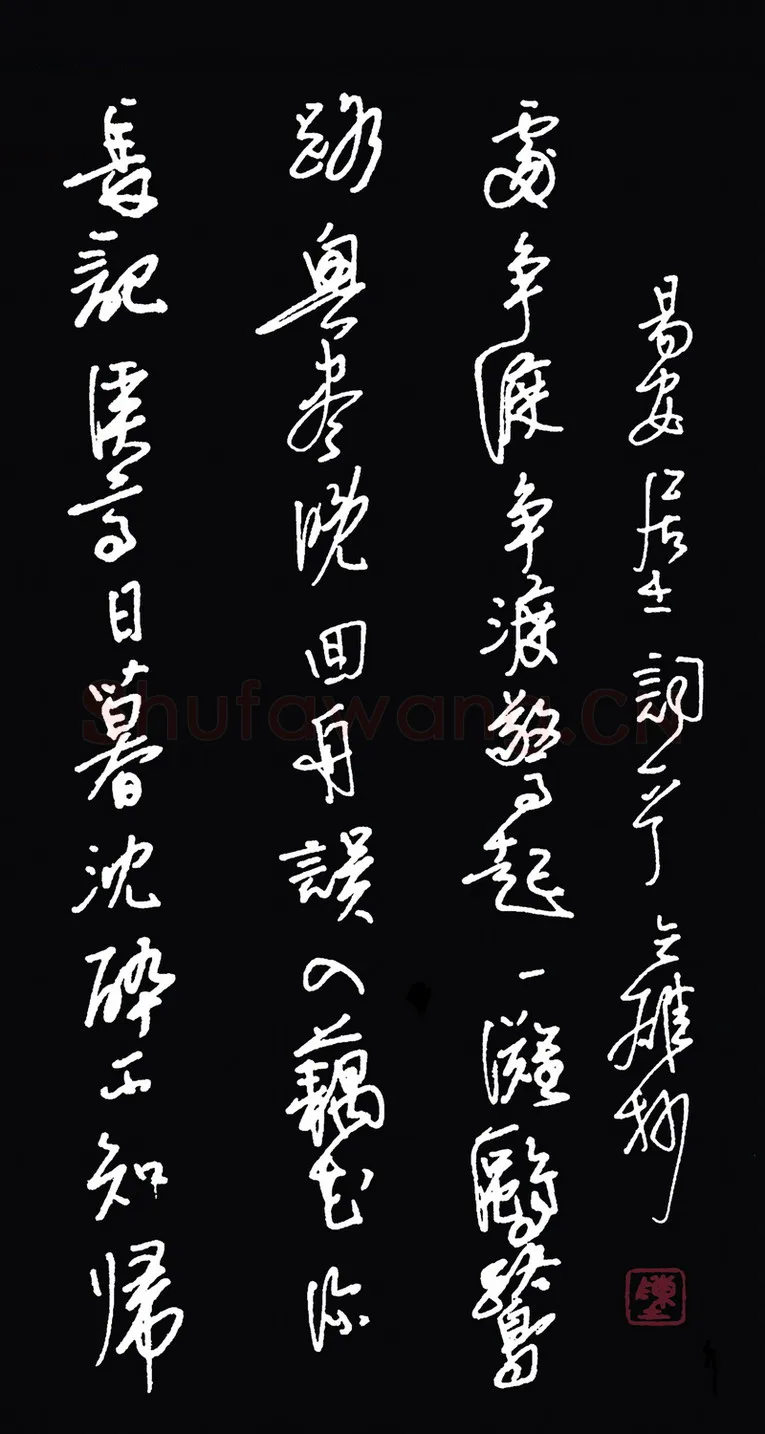 長記溪亭日暮沈醉不知帰
路興盡晚回舟誤入藕花深
處争渡争渡驚起一灘鷗鷺
易安居士詞一首
Shufawang.CN